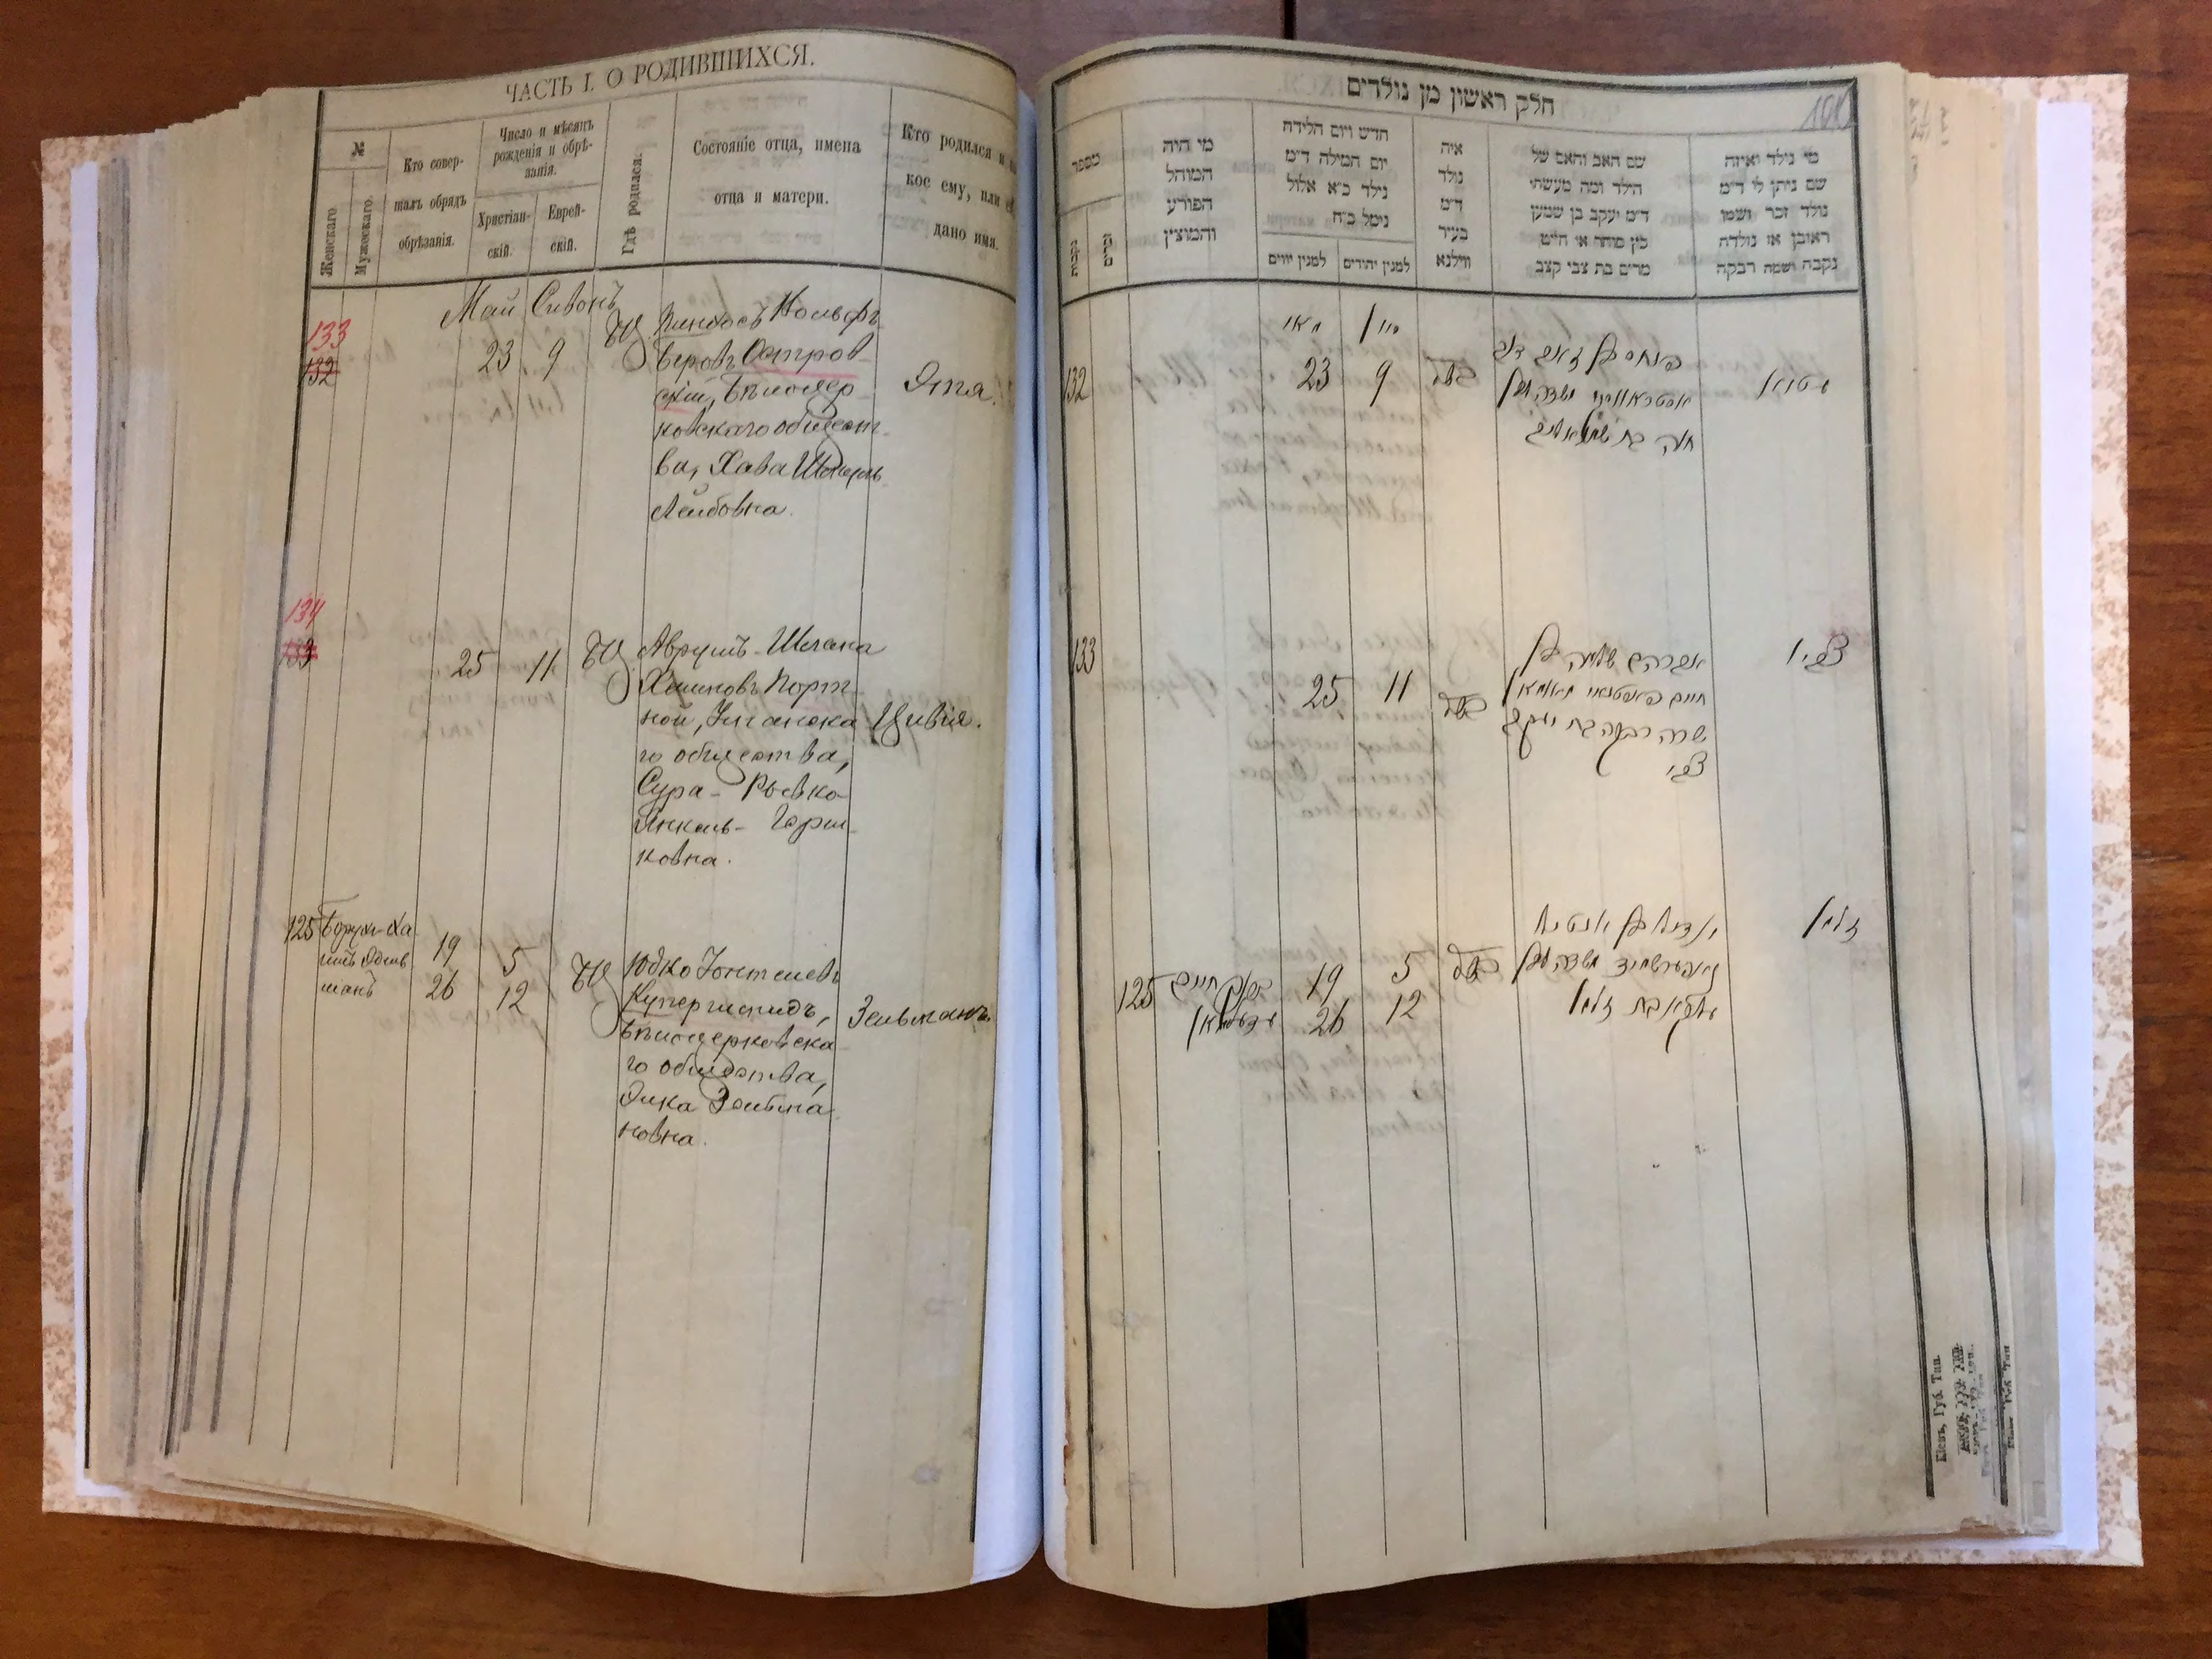 ЧАСТЬ I. О РОДИВШИХСЯ.
№
Женскаго.
Мужескаго.
Кто совер-
шалъ обрядъ
обрѣзанія.
Число и мѣсяцъ
рожденія и обрѣ-
занія.
Христіан-
скій.
Еврей-
скій.
Гдѣ родился.
Состояніе отца, имена
отца и матери.
Кто родился и
кое ему, или
дано имя.
Май Сивонъ
133
132
23 9
БЦ
Пинхосъ Вольфъ
Беровъ Остров
скій, Бѣлоцер
ковскаго общест-
ва, Хава Шмуль
Лейбовна.
Этя.
134
133
25 11
БЦ
Аврумъ-Шлема
Хаимовъ Порт
ной, Уманска
го общества,
Сура-Рывка
Янкель-Герш-
ковна.
Цивья.
125
Борухъ-Ха
имъ
19 5
26 12
БЦ
Юдко Іонтелевъ
Купершмидъ,
Бѣлоцерковска
го общества,
Элка Зельма
новна.
Зельманъ.
חלק ראשון מן נולדים
מספר
נקבות
זכרים
מי היה
המוהל
הפורע
והמוצץ
חדש ויום הלידה
יום המילה ד״מ
נילד כ״א אלול
נימל כ״ח
למנין יוונים
למנין יהודים
איה
נולד
ד״מ
בעיר
ווילנא
שם האב והאם של
הילד ומה מעשהו
ד״מ יעקב בן שמעון
כץ סוחר או חייט
מרים בת צבי קצב
מי נולד ואיזה
שם ניתן לו ד״מ
נולד זכר ושמו
ראובן או נולדה
נקבה ושמה רבקה
מאי סיון
132
23 9
פנחס בן זאב דוב
חוה בת שמואל ליב
133
25 11
אברהם שלמה בן
חיים
שרה רבקה בת יעקב
צבי
צביא
125
ברוך חיים
19 5
26 12
עלקא בת זלמן
זלמן
Кіевъ, Губ. Тип.